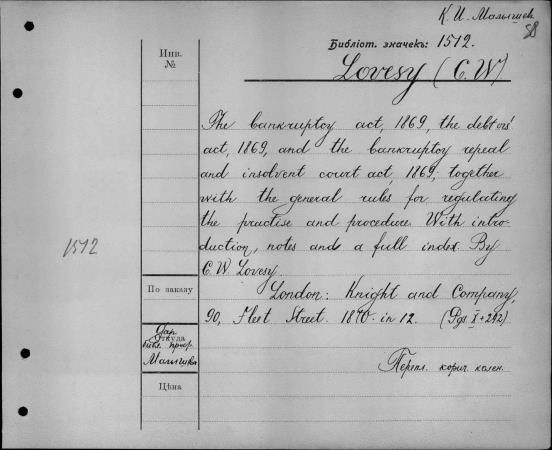 К. И. Малышев
58
Библіот. значекъ: 1512.
Инв.
№
Lovesy (C. W)
The bankruptcy act, 1869, the debtors'
act, 1869, and the bankruptcy repeal
and insolvent court act, 1869; together
with the general rules for regulating
the practise and procedure. With intro-
duction, notes and a full index. By
C. W. Lovesy.
1512
London: Knight and Company,
По заказу
90, Fleet Street. 1870. in 12. (Pgs X+242)
Дар
Откуда
Малышева
Перепл. корич. колен.
Цѣна